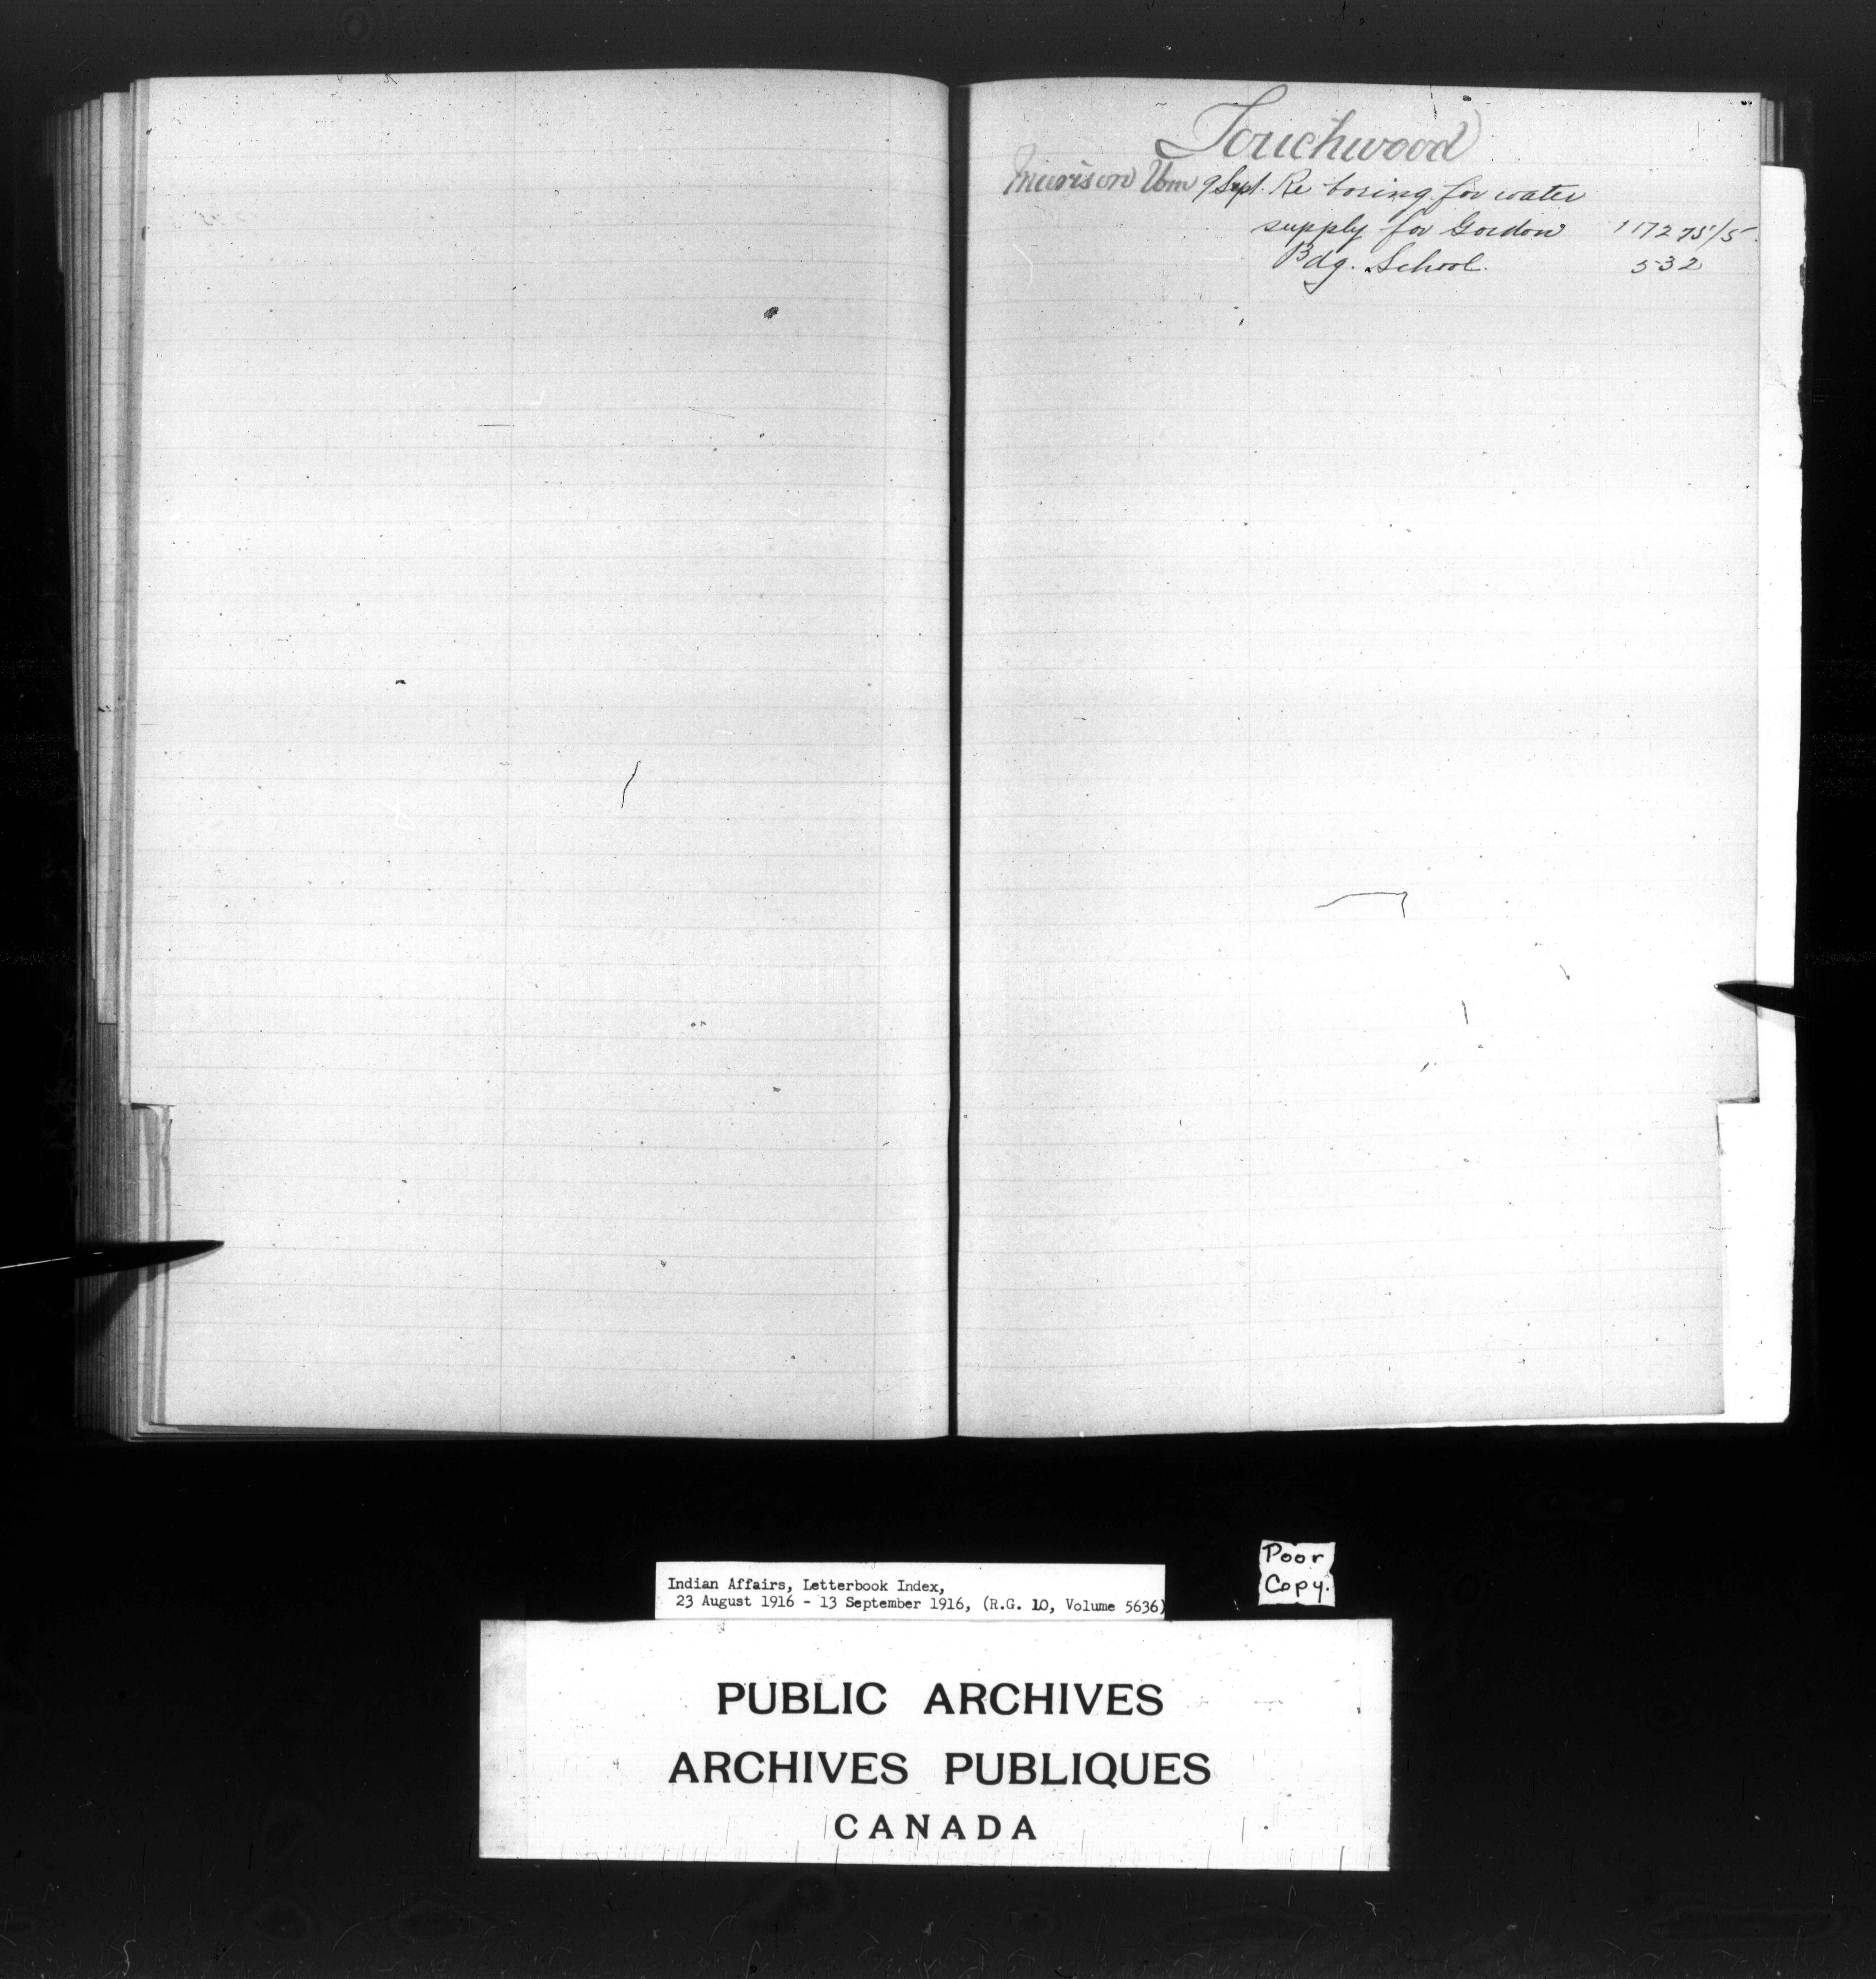 Touchwood
Murison Wm 9 Sept. Re boring for water
supply for Gordon 117275/5
Bdg. School. 532
Poor
Copy.
Indian Affairs, Letterbook Index,
23 August 1916 - 13 September 1916, (R.G. 10, Volume 5636)
PUBLIC ARCHIVES
ARCHIVES PUBLIQUES
CANADA